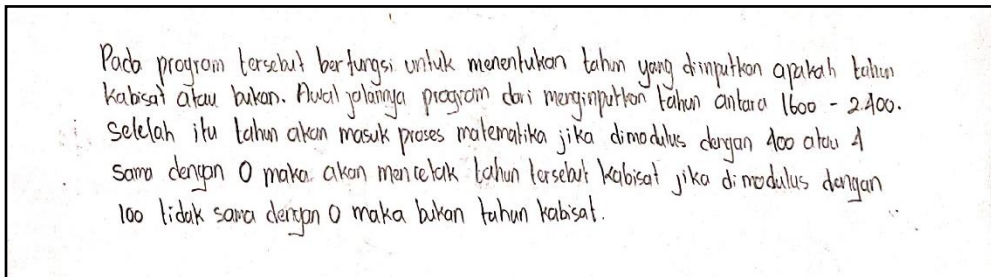 Pada program tersebut berfungsi untuk menentukan tahun yang diinputkan apakah tahun
kabisat atau bukan. Awal jalannya program dari menginputkan tahun antara 1600 - 2400.
Setelah itu tahun akan masuk proses matematika jika dimodulus dengan 400 atau 4
sama dengan 0 maka akan mencetak tahun tersebut kabisat jika dimodulus dengan
100 tidak sama dengan 0 maka bukan tahun kabisat.